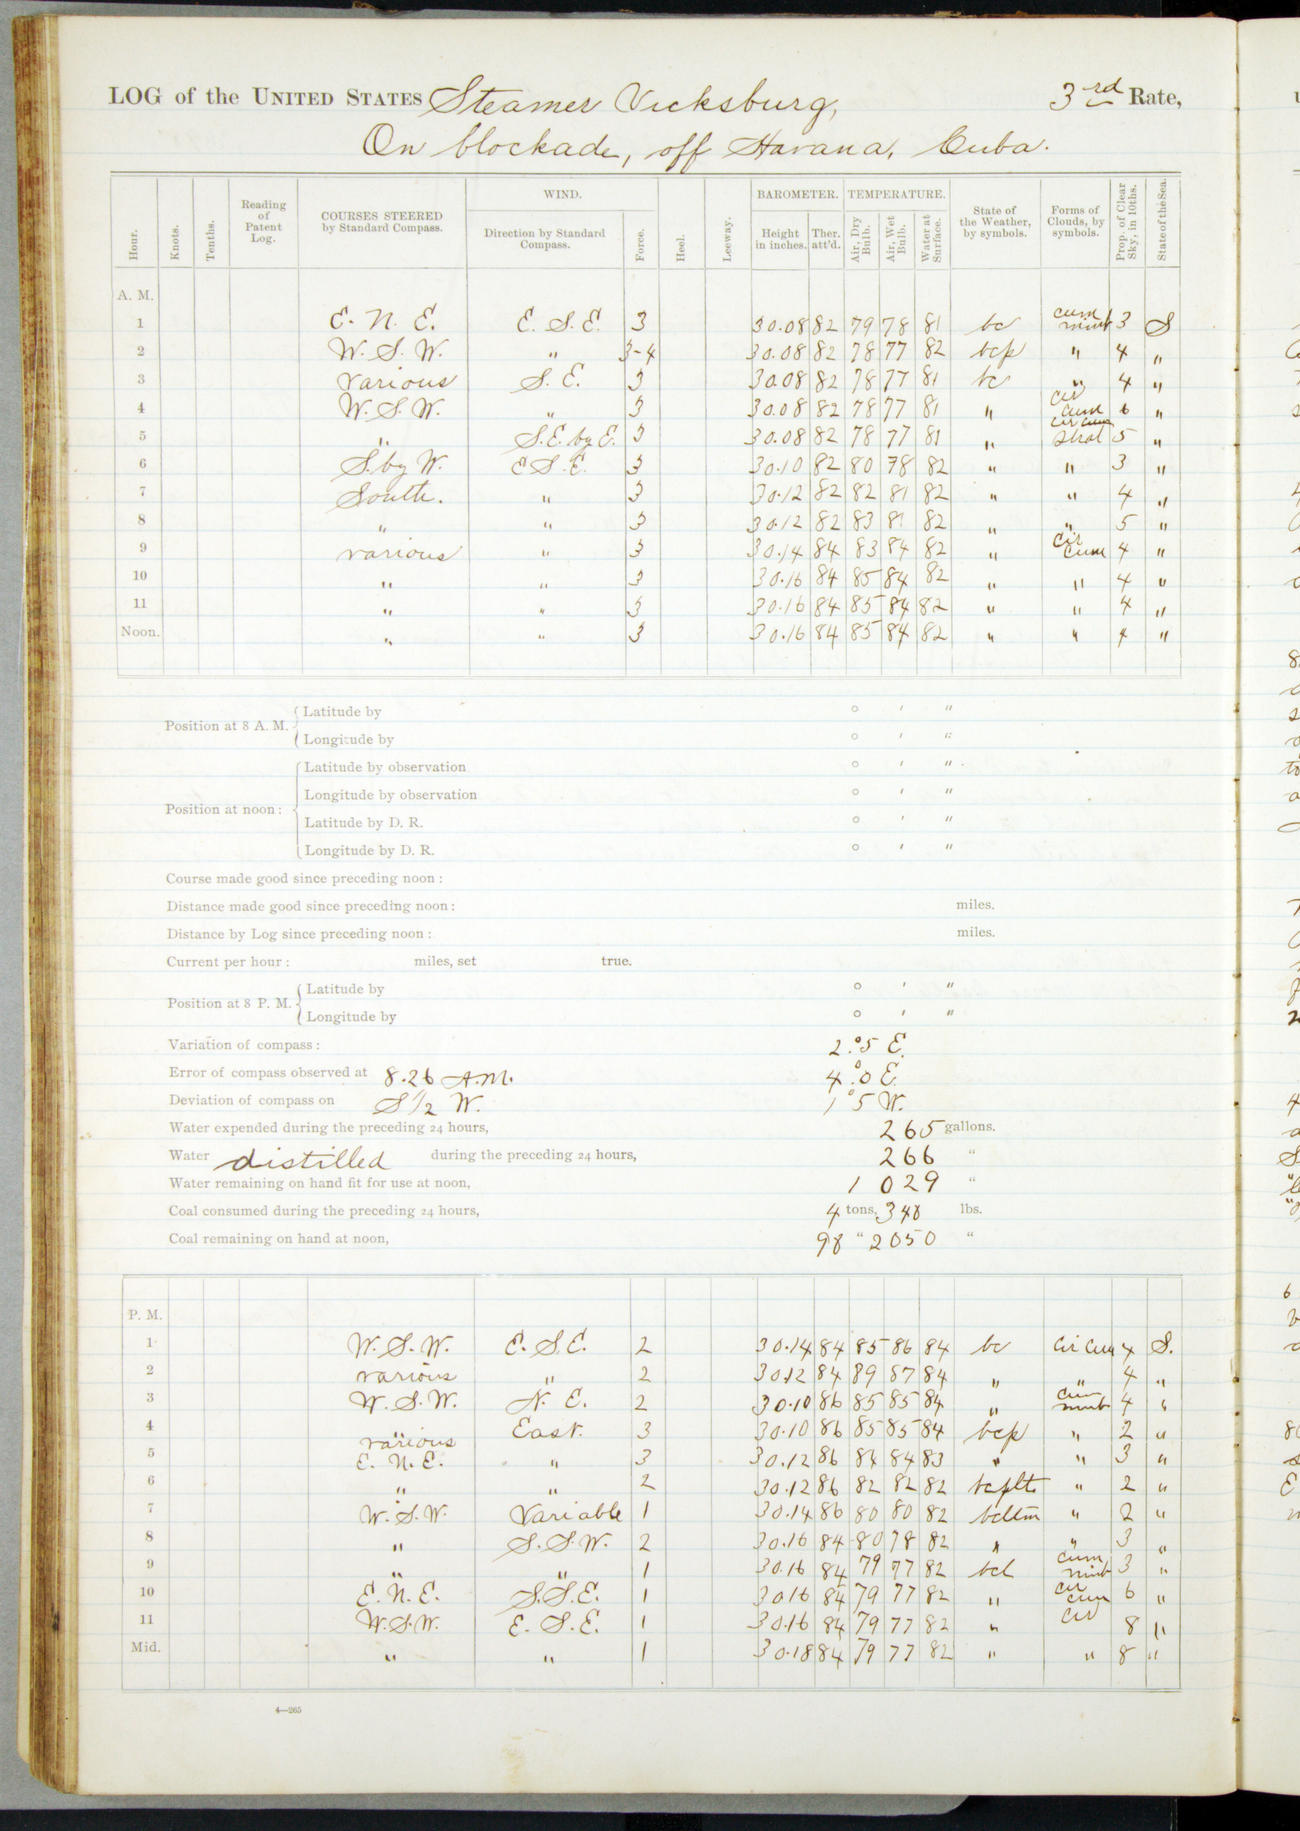 LOG of the UNITED STATES Steamer Vicksburg, 3rd Rate,
On blockade, off Havana, Cuba.
Hour. Knots. Tenths. Reading of Patent Log. COURSES STEERED by Standard Compass. WIND. Direction by Standard Compass. Force. Heel. Leeway. BAROMETER. Height in inches. Ther. att'd. TEMPERATURE. Air, Dry Bulb. Air, Wet Bulb. Water at Surface. State of the Weather, by symbols. Forms of Clouds, by symbols. Prop. of Clear Sky, in 10ths. State of the Sea.
A. M.
1 E. N. E. E. S. E. 3 30.08 82 79 78 81 bc cum nimb 3 S
2 W. S. W. " 3-4 30.08 82 78 77 82 bcp " 4 "
3 various S. E. 3 30.08 82 78 77 81 bc " 4 "
4 W. S. W. " 3 30.08 82 78 77 81 " cir cum 6 "
5 " S.E. by E. 3 30.08 82 78 77 81 " cir cum strat 5 "
6 S. by W. E S. E. 3 30.10 82 80 78 82 " " 3 "
7 South. " 3 30.12 82 82 81 82 " " 4 "
8 " " 3 30.12 82 83 81 82 " " 5 "
9 various " 3 30.14 84 83 84 82 " cir cum 4 "
10 " " 3 30.16 84 85 84 82 " " 4 "
11 " " 3 30.16 84 85 84 82 " " 4 "
Noon. " " 3 30.16 84 85 84 82 " " 4 "
Position at 8 A. M. Latitude by ° ′ ″
Longitude by ° ′ ″
Position at noon: Latitude by observation ° ′ ″
Longitude by observation ° ′ ″
Latitude by D. R. ° ′ ″
Longitude by D. R. ° ′ ″
Course made good since preceding noon:
Distance made good since preceding noon: miles.
Distance by Log since preceding noon: miles.
Current per hour: miles, set true.
Position at 8 P. M. Latitude by ° ′ ″
Longitude by ° ′ ″
Variation of compass: 2.°5 E.
Error of compass observed at 8.26 A.M. 4.°0 E.
Deviation of compass on S 1/2 W. 1°5 W.
Water expended during the preceding 24 hours, 265 gallons.
Water distilled during the preceding 24 hours, 266 "
Water remaining on hand fit for use at noon, 1 029 "
Coal consumed during the preceding 24 hours, 4 tons, 348 lbs.
Coal remaining on hand at noon, 98 " 2050 "
P. M.
1 W. S. W. E. S. E. 2 30.14 84 85 86 84 bc cir cum 4 S.
2 various " 2 30.12 84 89 87 84 " " 4 "
3 W. S. W. N. E. 2 30.10 86 85 85 84 " cum nimb 4 "
4 various East. 3 30.10 86 85 85 84 bcp " 2 "
5 E. N. E. " 3 30.12 86 84 84 83 " " 3 "
6 " " 2 30.12 86 82 82 82 bcplt " 2 "
7 W. S. W. Variable 1 30.14 86 80 80 82 bcltm " 2 "
8 " S. S. W. 2 30.16 84 80 78 82 " " 3 "
9 " " 1 30.16 84 79 77 82 bcl cum nimb 3 "
10 E. N. E. S. S. E. 1 30.16 84 79 77 82 " cir cum 6 "
11 W. S. W. E. S. E. 1 30.16 84 79 77 82 " cir 8 "
Mid. " " 1 30.18 84 79 77 82 " " 8 "
4—265